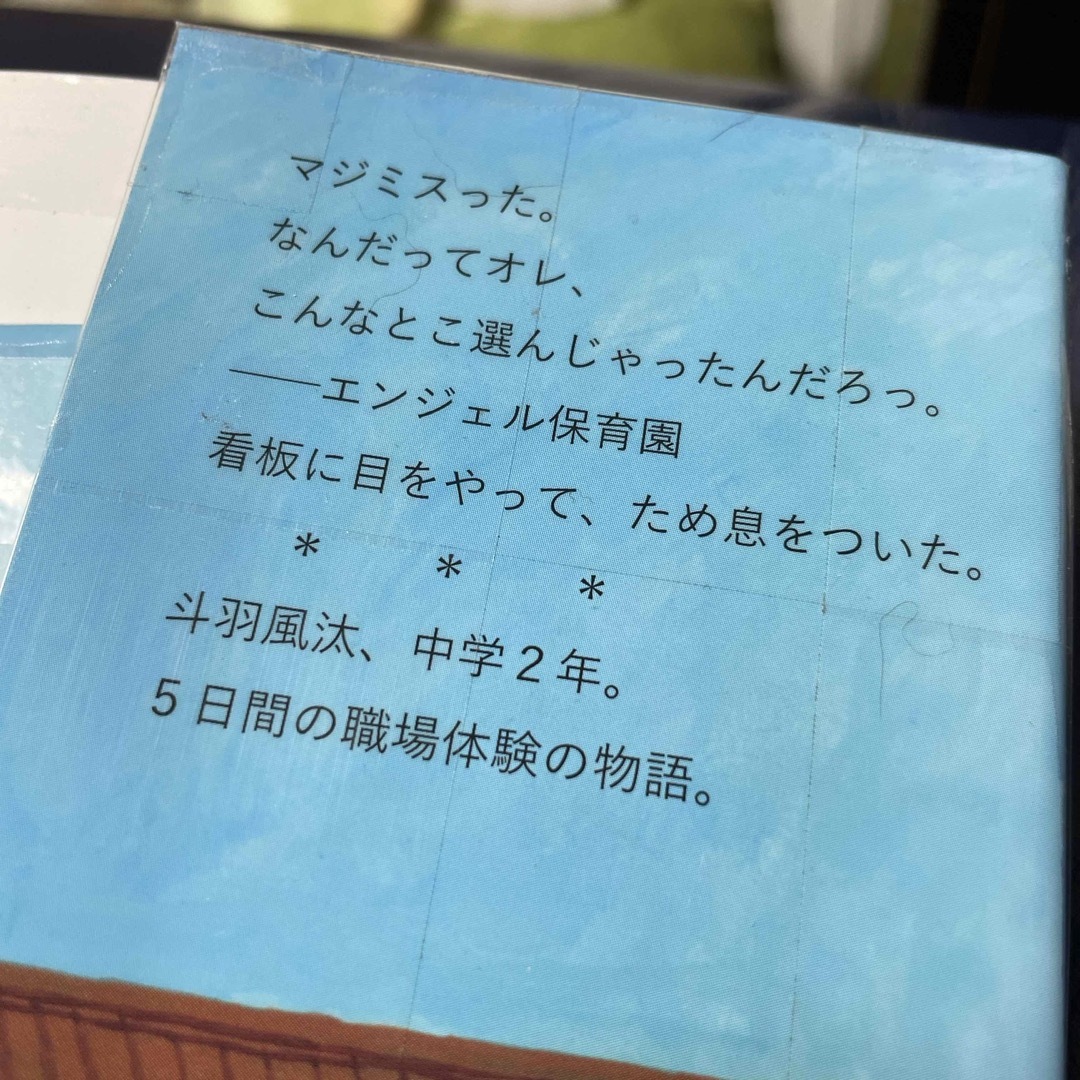 マジミスった。
なんだってオレ、
こんなとこ選んじゃったんだろっ。
――エンジェル保育園
看板に目をやって、ため息をついた。
＊　＊　＊
斗羽風汰、中学２年。
５日間の職場体験の物語。